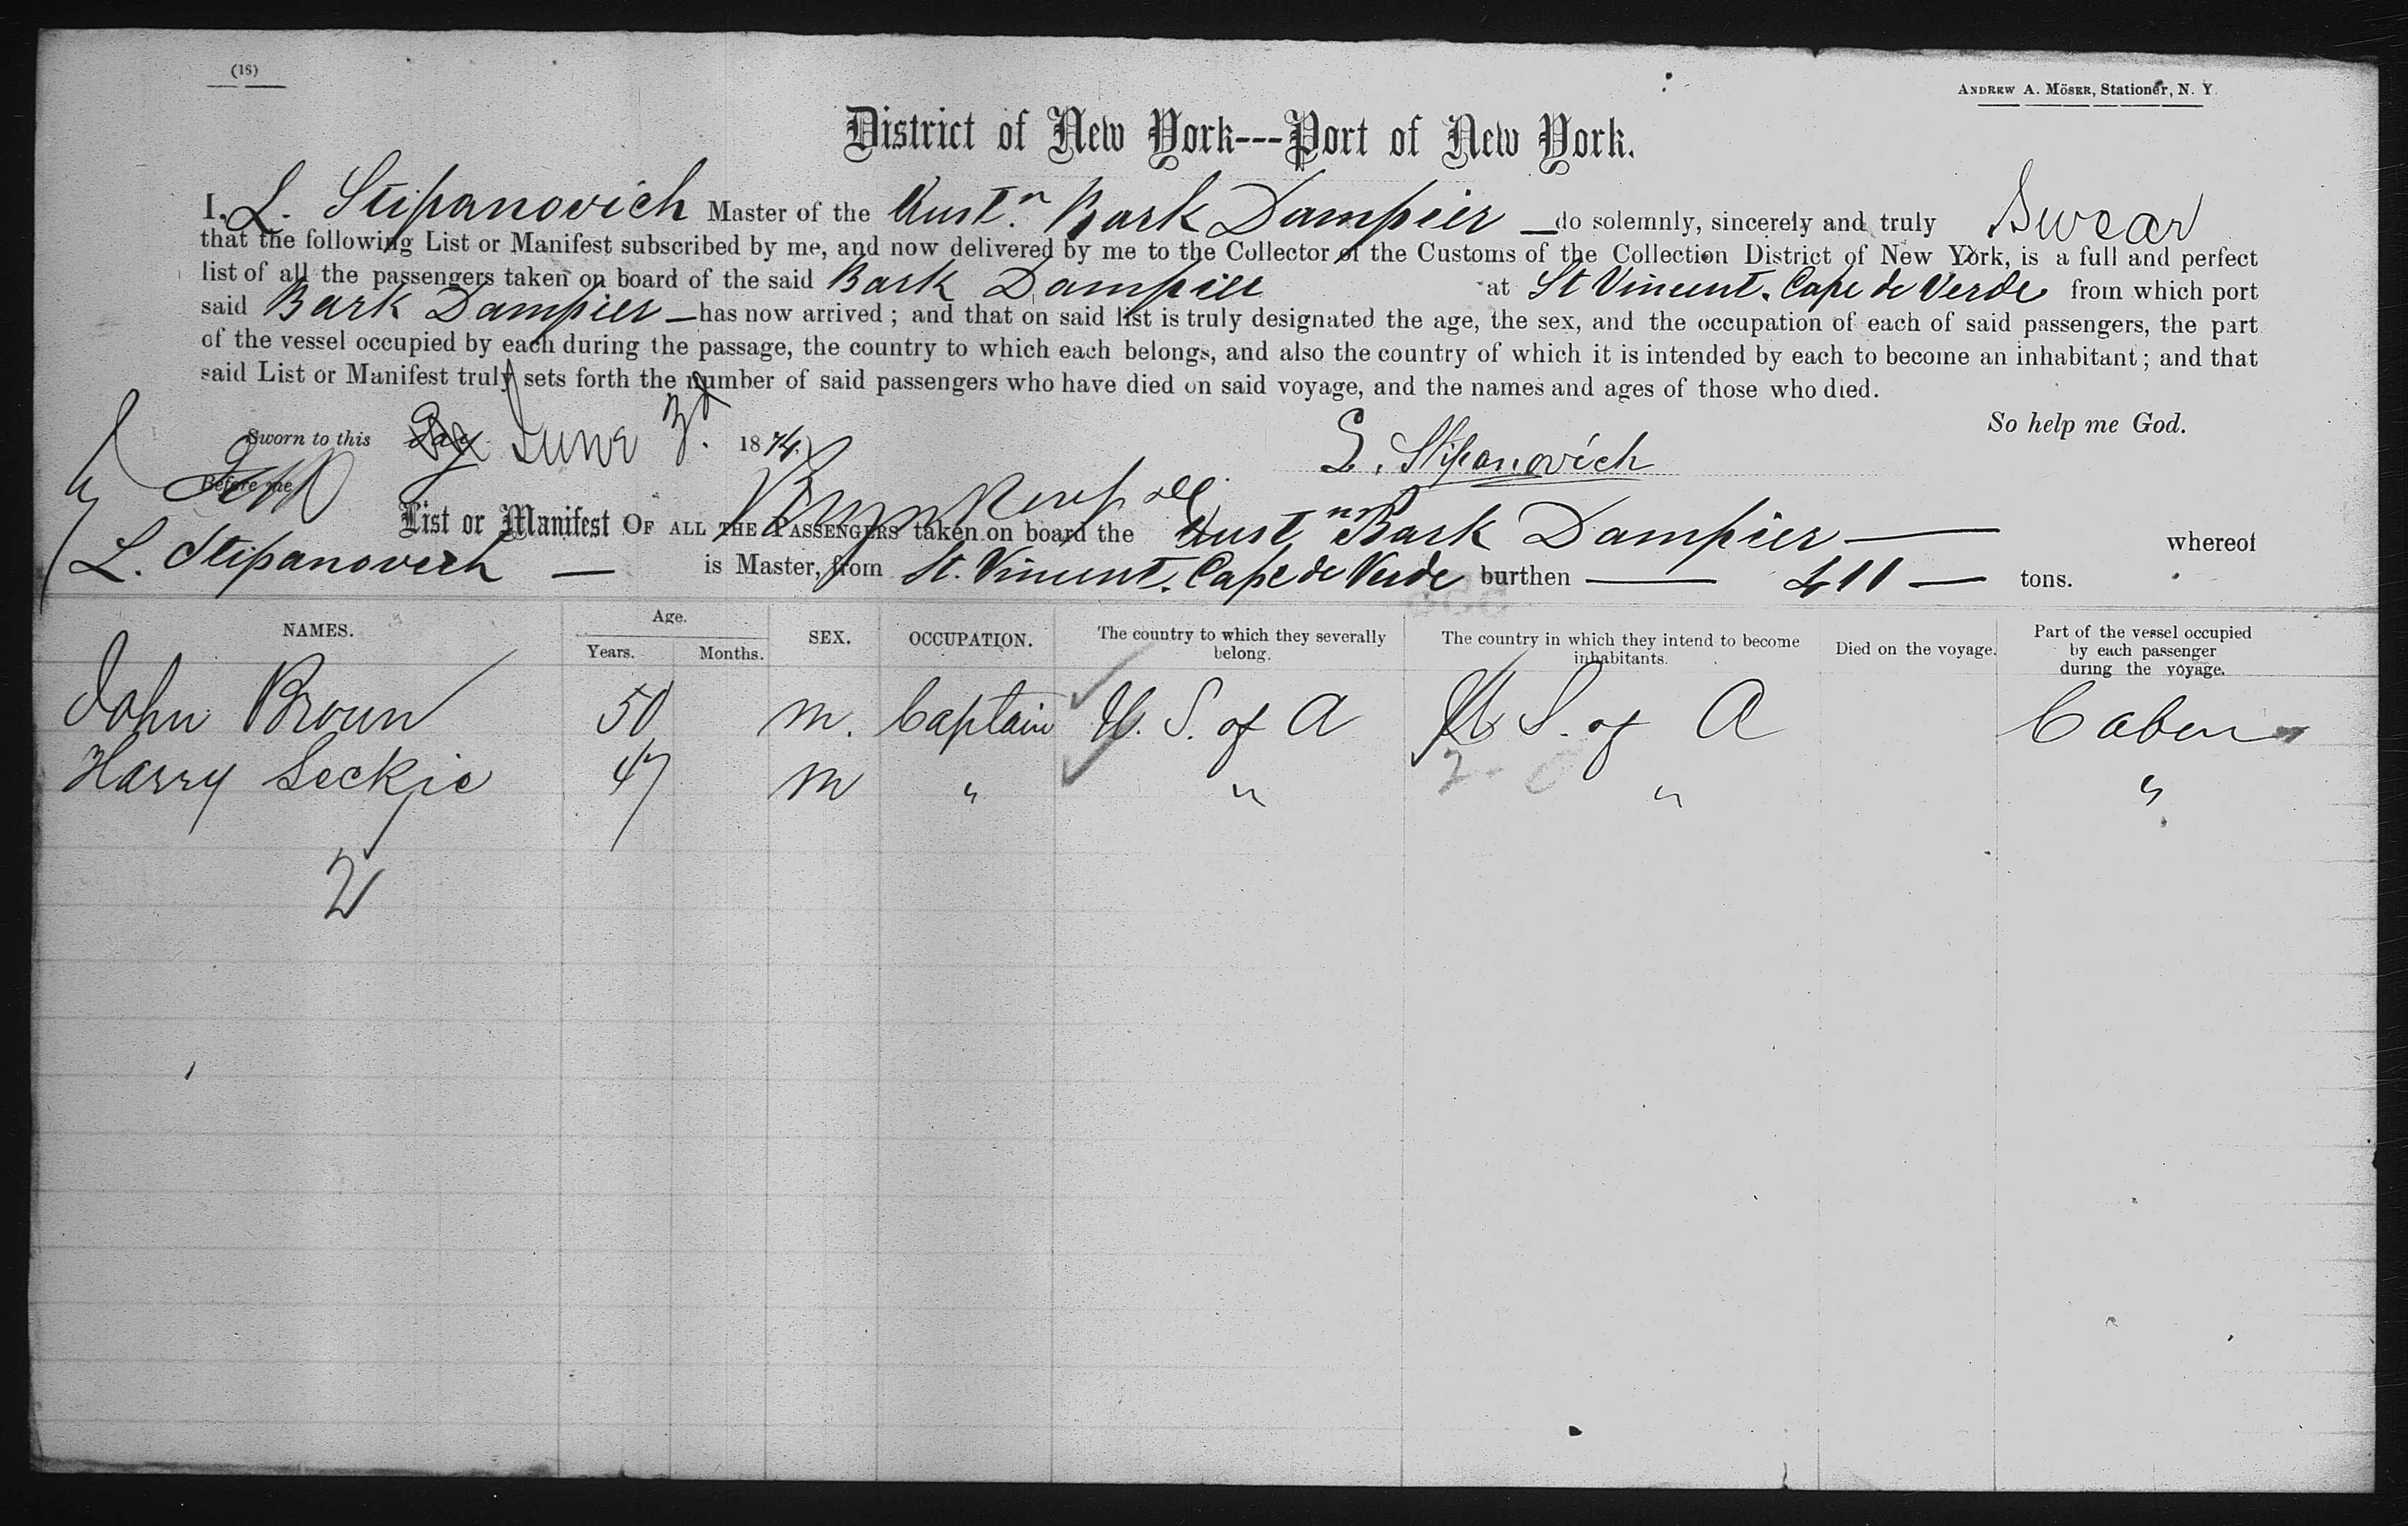 (18)
ANDREW A. MÖSER, Stationer, N. Y.
District of New York---Port of New York.
I, L. Stipanovich Master of the Aust.n Bark Dampier — do solemnly, sincerely and truly Swear
that the following List or Manifest subscribed by me, and now delivered by me to the Collector of the Customs of the Collection District of New York, is a full and perfect
list of all the passengers taken on board of the said Bark Dampier at St Vincent. Cape de Verde from which port
said Bark Dampier — has now arrived; and that on said list is truly designated the age, the sex, and the occupation of each of said passengers, the part
of the vessel occupied by each during the passage, the country to which each belongs, and also the country of which it is intended by each to become an inhabitant; and that
said List or Manifest truly sets forth the number of said passengers who have died on said voyage, and the names and ages of those who died.
So help me God.
Sworn to this June 3d. 1874.
L. Stipanovich
Before me
List or Manifest OF ALL THE PASSENGERS taken on board the Austn Bark Dampier — whereof
L. Stipanovich — is Master, from St. Vincent. Cape de Verde burthen — 411 — tons.
NAMES. Age. Years. Months. SEX. OCCUPATION. The country to which they severally belong. The country in which they intend to become inhabitants. Died on the voyage. Part of the vessel occupied by each passenger during the voyage.
John Brown 50 m. Captain U. S. of A U S. of A Caben
Harry Leckie 47 m " " " "
2